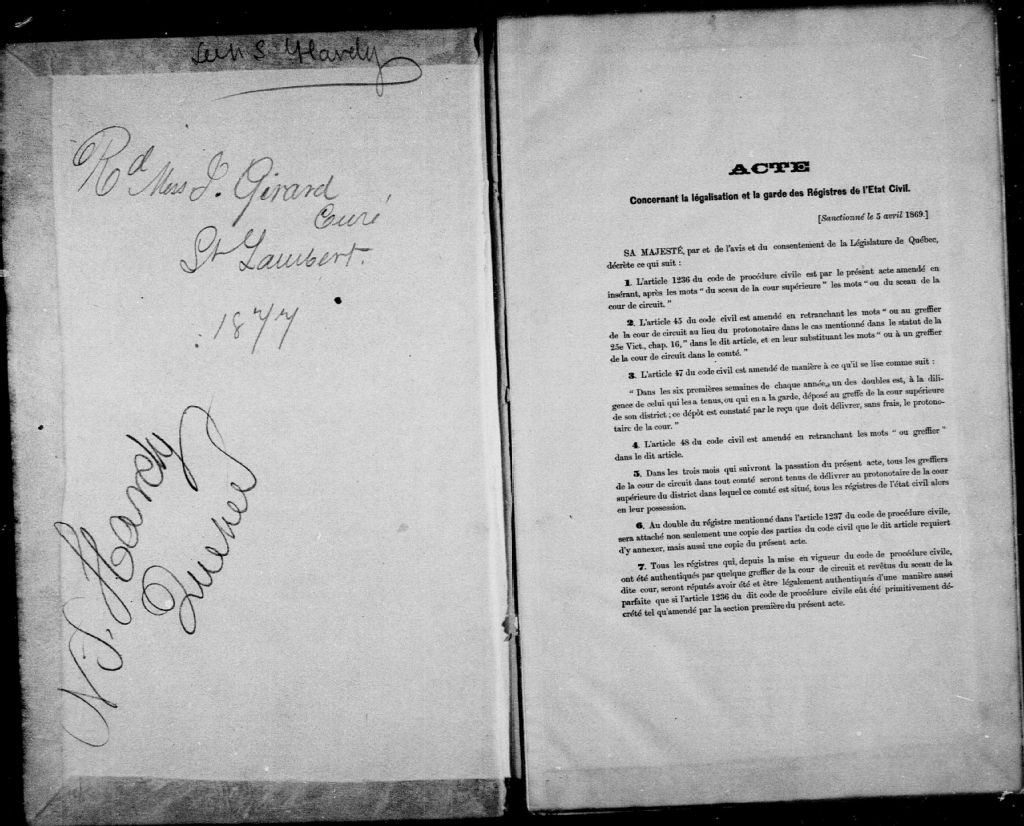 S. Hardy
Rd Mess J. Girard
Curé
St Lambert.
1877
N. S. Hardy
Quebec
ACTE
Concernant la légalisation et la garde des Régistres de l'Etat Civil.
[Sanctionné le 5 avril 1869.]
SA MAJESTÉ, par et de l'avis et du consentement de la Législature de Québec,
décrète ce qui suit :
1. L'article 1236 du code de procédure civile est par le présent acte amendé en
insérant, après les mots " du sceau de la cour supérieure " les mots " ou du sceau de la
cour de circuit. "
2. L'article 45 du code civil est amendé en retranchant les mots " ou au greffier
de la cour de circuit au lieu du protonotaire dans le cas mentionné dans le statut de la
25e Vict., chap. 16, " dans le dit article, et en leur substituant les mots " ou à un greffier
de la cour de circuit dans le comté. "
3. L'article 47 du code civil est amendé de manière à ce qu'il se lise comme suit :
" Dans les six premières semaines de chaque année, un des doubles est, à la dili-
gence de celui qui les a tenus, ou qui en a la garde, déposé au greffe de la cour supérieure
de son district ; ce dépôt est constaté par le reçu que doit délivrer, sans frais, le protono-
taire de la cour. "
4. L'article 48 du code civil est amendé en retranchant les mots " ou greffier "
dans le dit article.
5. Dans les trois mois qui suivront la passation du présent acte, tous les greffiers
de la cour de circuit dans tout comté seront tenus de délivrer au protonotaire de la cour
supérieure du district dans lequel ce comté est situé, tous les régistres de l'état civil alors
en leur possession.
6. Au double du régistre mentionné dans l'article 1237 du code de procédure civile,
sera attaché non seulement une copie des parties du code civil que le dit article requiert
d'y annexer, mais aussi une copie du présent acte.
7. Tous les régistres qui, depuis la mise en vigueur du code de procédure civile,
ont été authentiqués par quelque greffier de la cour de circuit et revêtus du sceau de la
dite cour, seront réputés avoir été et être légalement authentiqués d'une manière aussi
parfaite que si l'article 1236 du dit code de procédure civile eût été primitivement dé-
crété tel qu'amendé par la section première du présent acte.